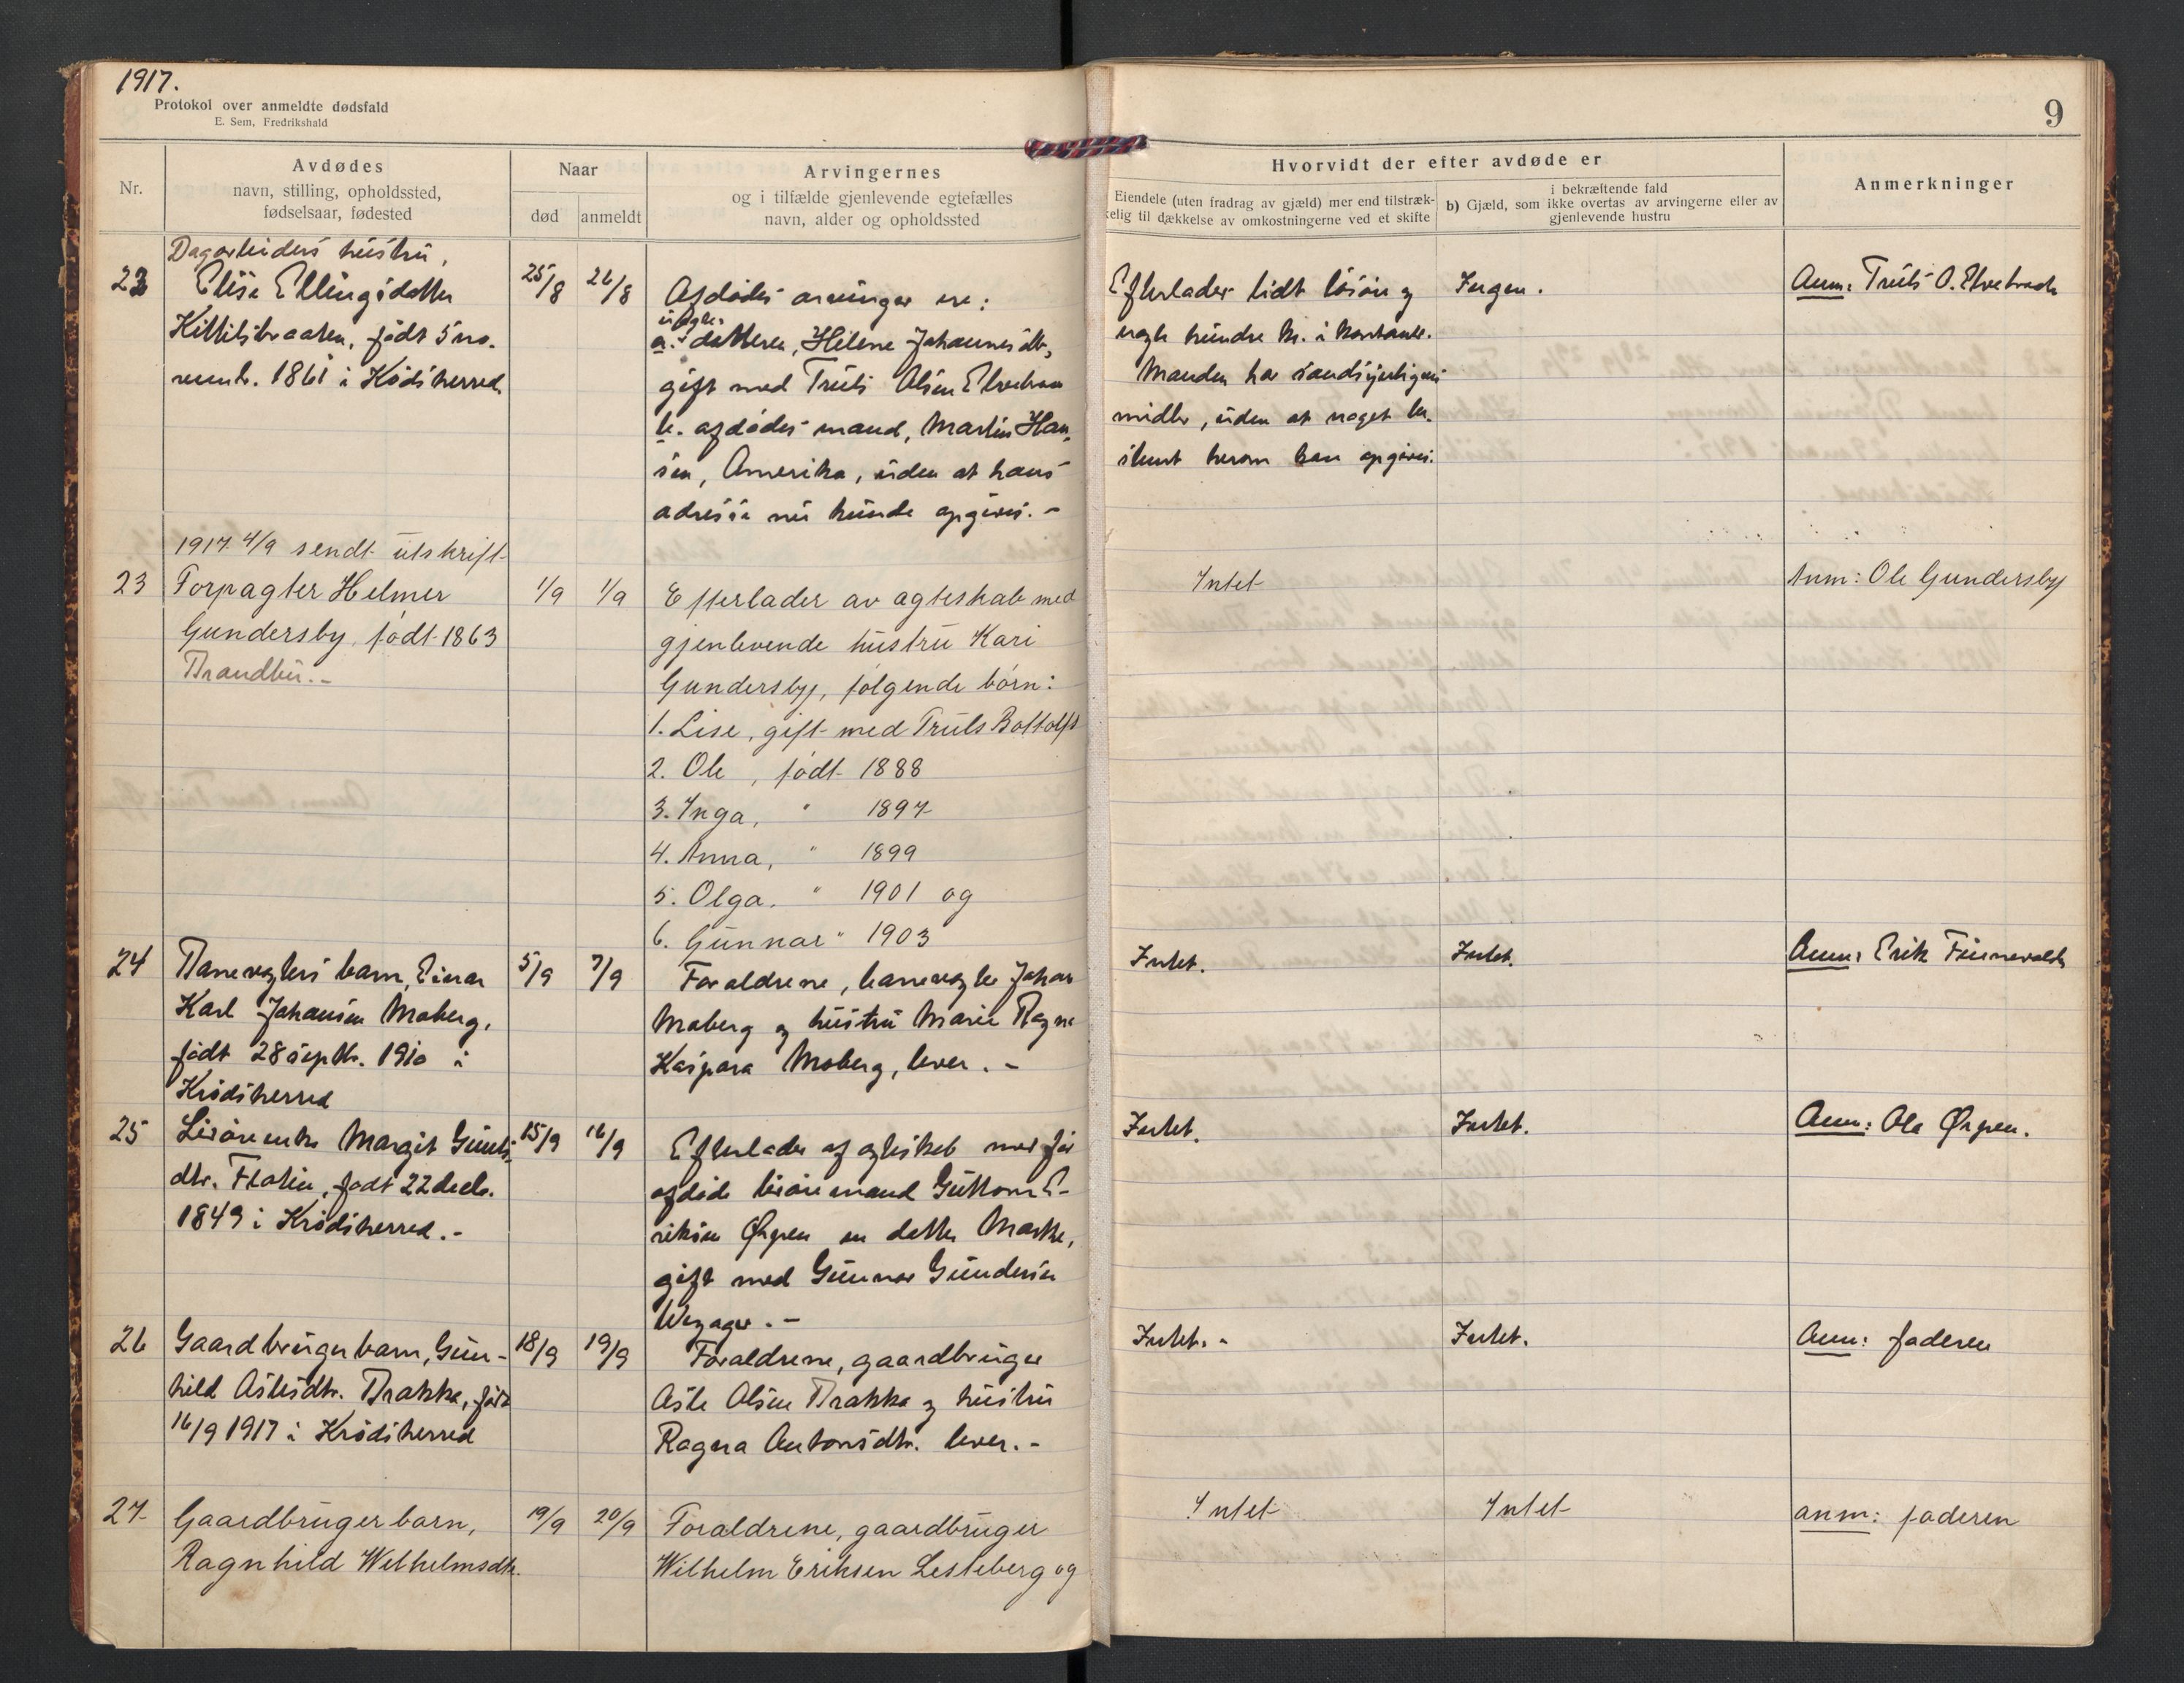 1917.
Protokol over anmeldte dødsfald
E. Sem, Fredrikshald
9
Nr.
Avdødes
navn, stilling, opholdssted,
fødselsaar, fødested
Naar
død
anmeldt
Arvingernes
og i tilfælde gjenlevende egtefælles
navn, alder og opholdssted
Hvorvidt der efter avdøde er
Eiendele (uten fradrag av gjæld) mer end tilstræk-
kelig til dækkelse av omkostningerne ved et skifte
i bekræftende fald
b) Gjæld, som ikke overtas av arvingerne eller av
gjenlevende hustru
Anmerkninger
Dagarbeiders hustru,
23 Elise Ellingsdatter
Kittilsbraaten, født 5 no-
vemb. 1861 i Kødsherred
25/8
26/8
Afdødes arvinger ere:
a. datteren, Helene Johannesdtr,
gift med Truls Olsen
b. afdødes mand, Martin Han-
sen, Amerika, uden at hans
adresse nu kunde opgives. -
Efterlader lidt løsøre og
nogle hundre kr. i kontante.
Manden har sandsynligvis
midler, uden at noget be-
stemt herom kan opgives.
Ingen.
Anm: Truls O.
1917 4/9 sendt utskrift
23
Forpagter Helmer
Gundersby, født 1863
Brandbu. -
1/9
1/9
Efterlader av agteskab med
gjenlevende hustru Kari
Gundersby, følgende børn:
1. Lise, gift med Truls Bottolfs
2. Ole, født 1888
3. Inga, " 1897
4. Anna, " 1899
5. Olga. " 1901 og
6. Gunnar " 1903
Intet
Anm: Ole Gundersby
24
Banevogters barn, Einar
Karl Johansen Moberg,
født 28 septbr. 1910 i
Krødsherred
5/9
7/9
Foraldrene, banevogter Johan
Moberg og hustru Marie Ragna
Kaspara Moberg, lever. -
Intet.
Intet.
Anm: Erik
25
Margit
dtr. Flatin, født 22 decb.
1849 i Krødsherred. -
15/9
16/9
Efterlader af agteskab med før
afdøde Guttorm E-
riksen Ørpen en datter Marthe,
gift med Gunnar Gundersen
Intet.
Intet.
Anm: Ole Ørpen.
26
Gaardbruger barn, Gun-
hild Aslesdtr. Brakka, født
16/9 1917 i Krødsherred
18/9
19/9
Foraldrene, gaardbruger
Asle Olsen Brakka og hustru
Ragna Antonsdtr. lever. -
Intet. -
Intet.
Anm: faderen
27
Gaardbruger barn,
Ragnhild Wilhelmsdtr.
19/9
20/9
Foraldrene, gaardbruger
Wilhelm Eriksen Lesteberg og
Intet
Intet
anm: faderen